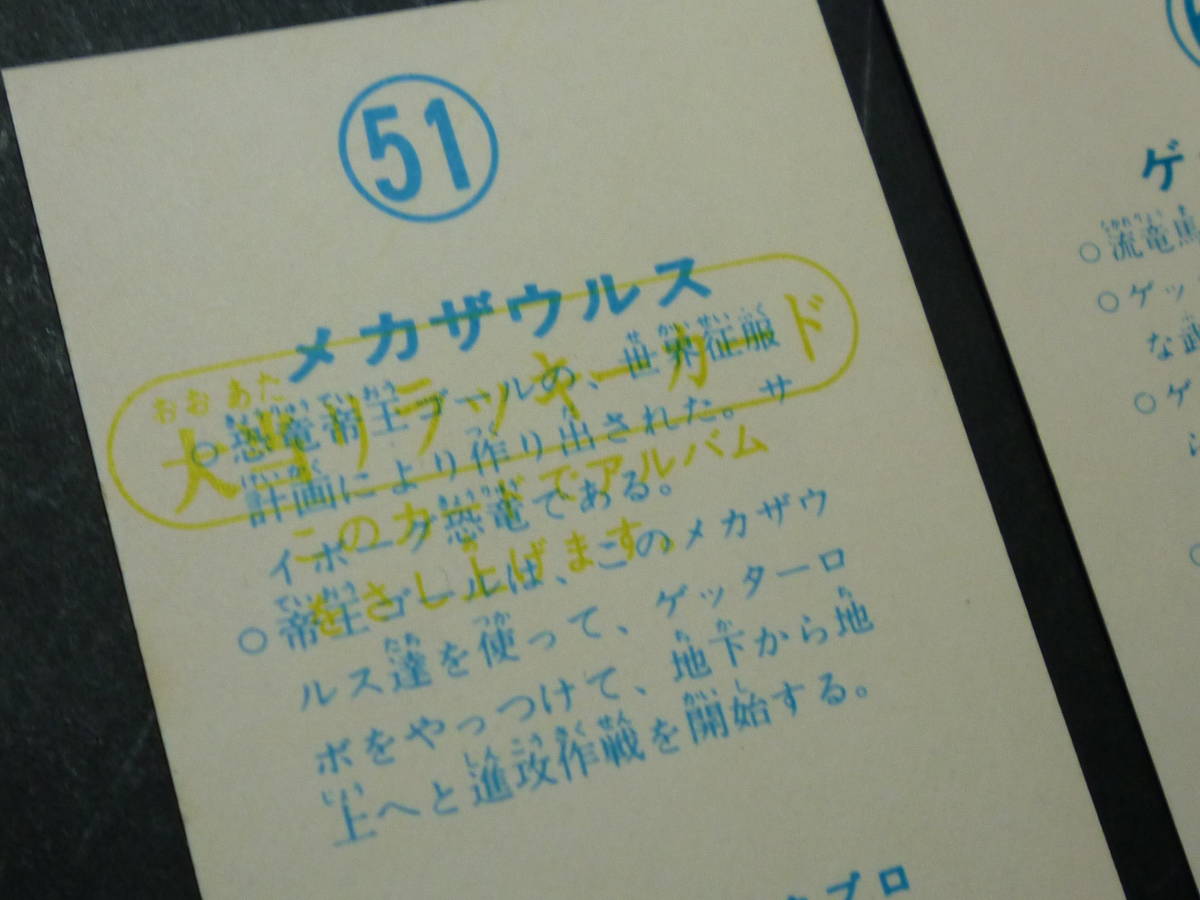 51
メカザウルス
○恐竜帝王ゴールの、世界征服
計画により作り出された。サ
イボーグ恐竜である。
○帝王ゴールは、このメカザウ
ルス達を使って、ゲッターロ
ボをやっつけて、地下から地
上へと進攻作戦を開始する。
大当りラッキーカード
このカードでアルバム
をさし上げます。
プロ
ゲ
○流竜馬
○ゲッ
な武
○ゲ
ら